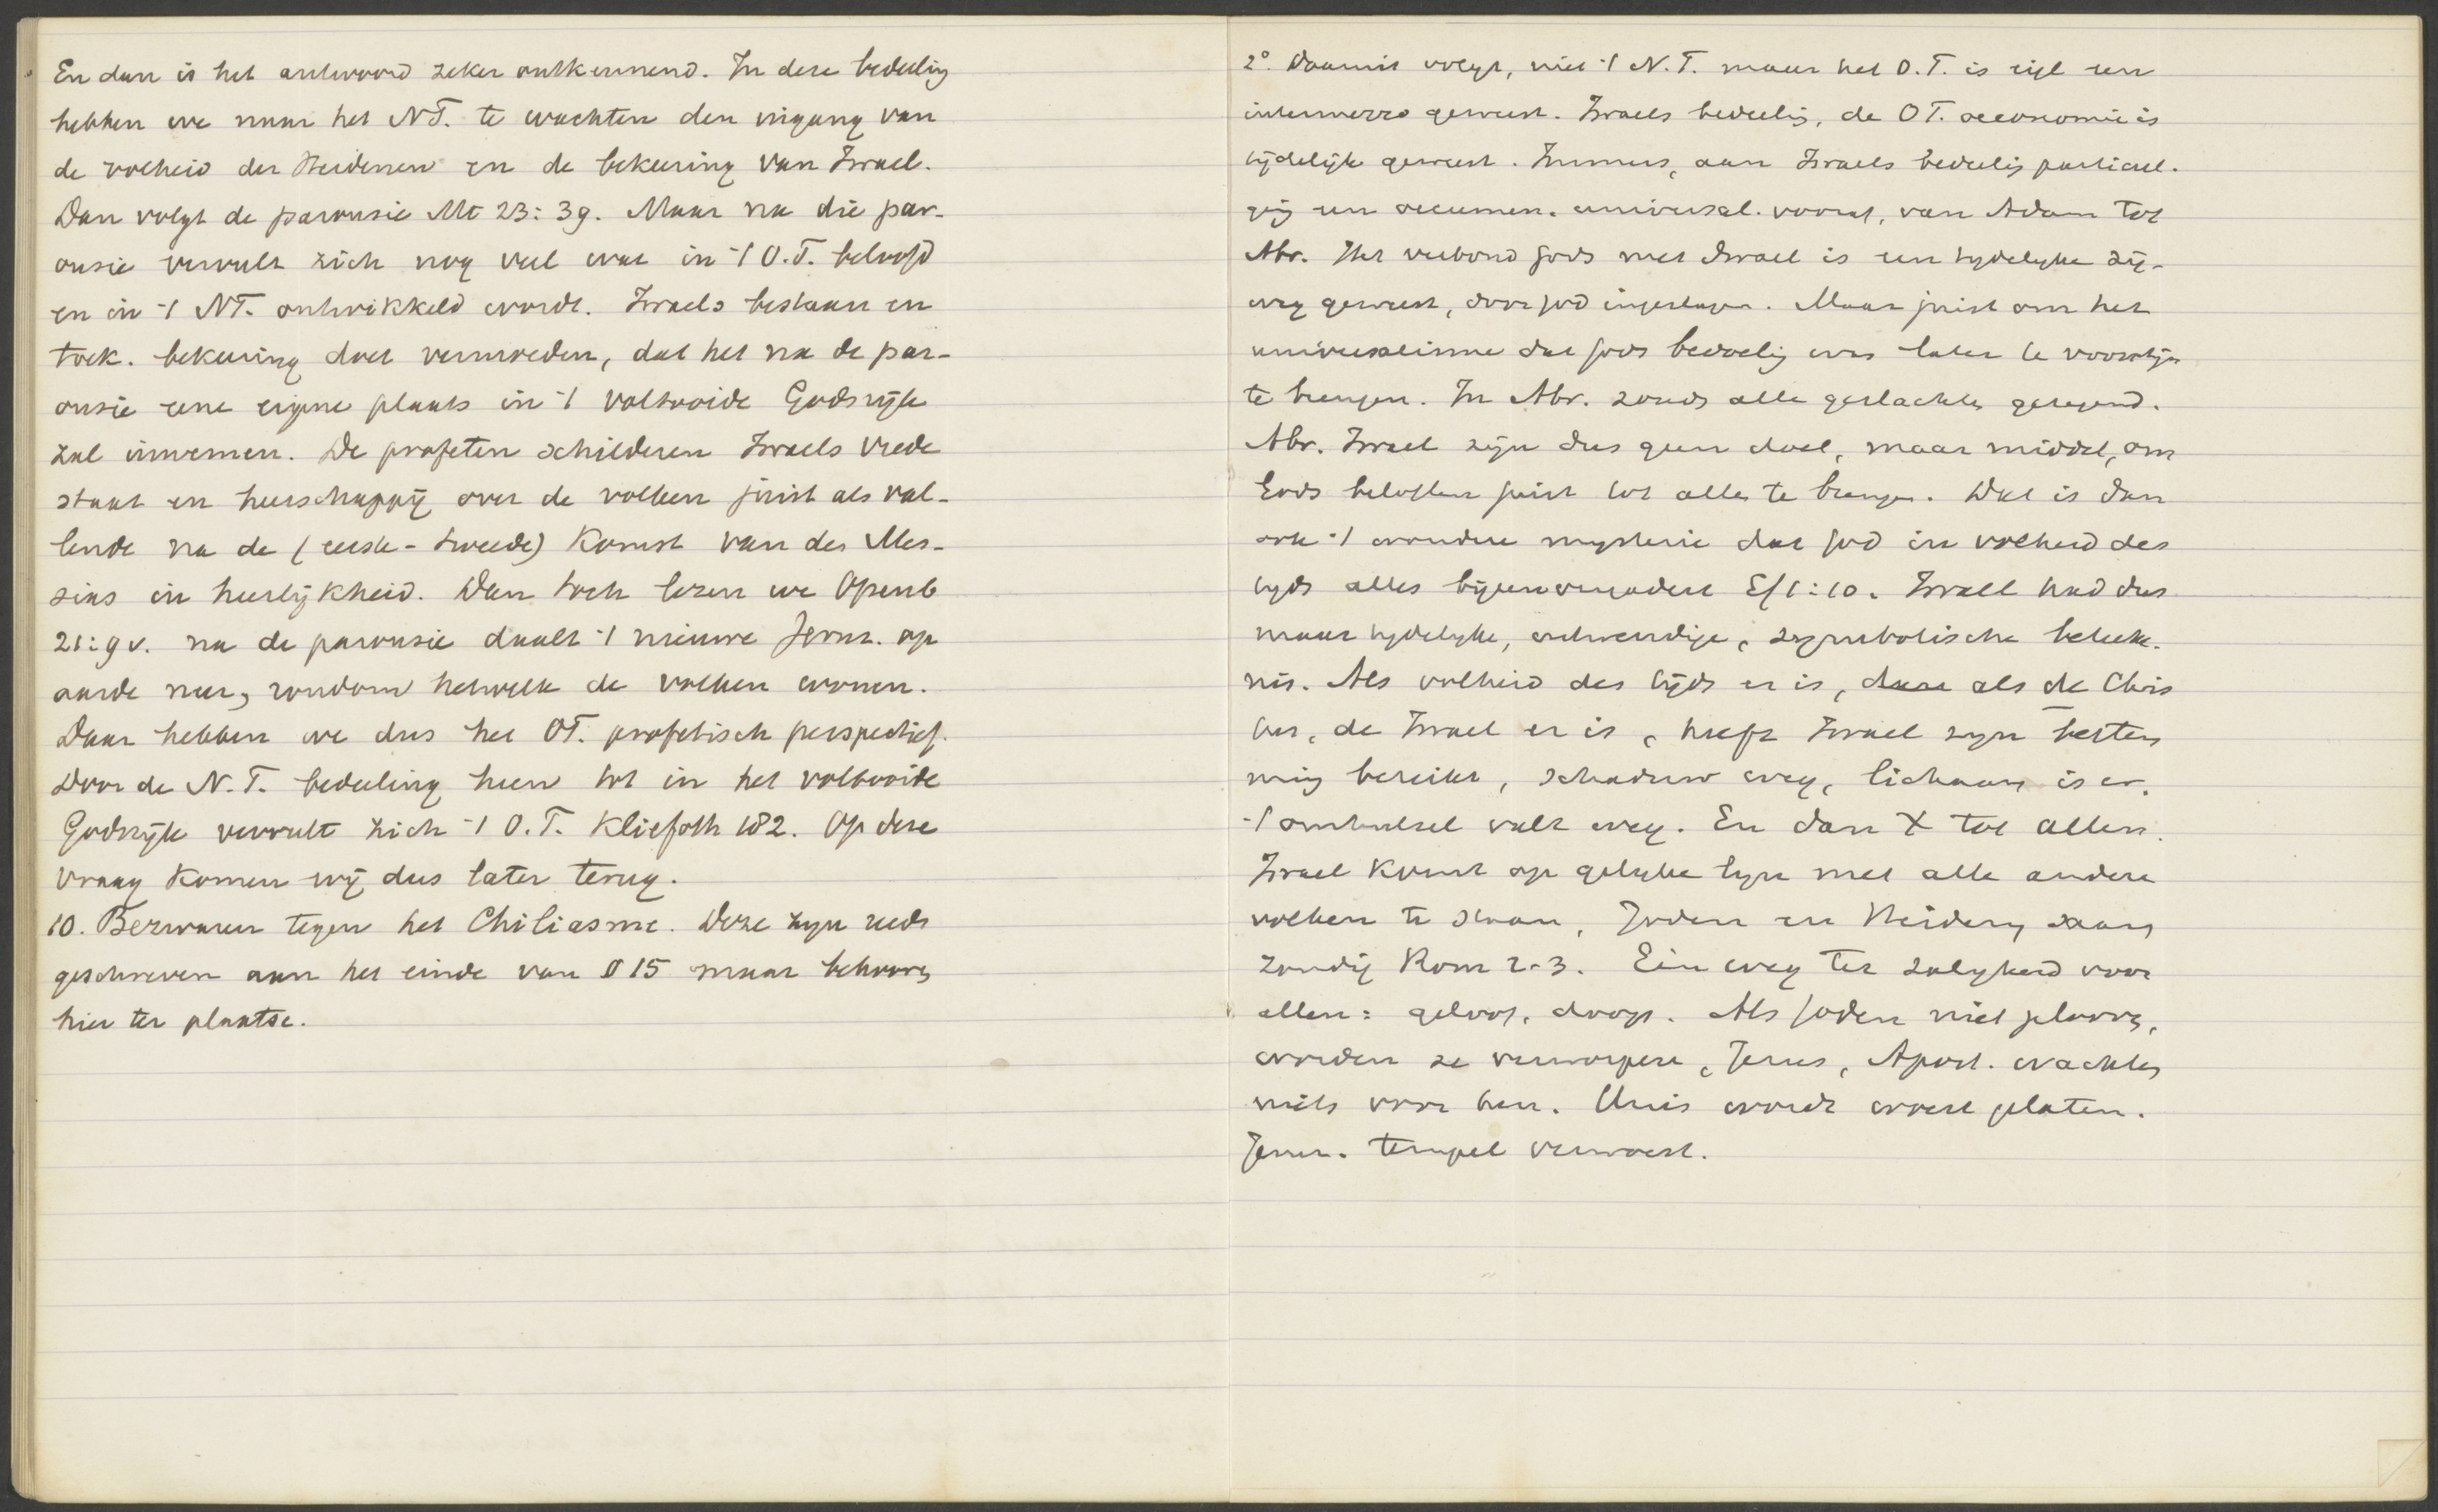 En dan is het antwoord zeker ontkennend. In deze bedeelig
hebben we naar het NT. te wachten den ingang van
de volheid der Heidenen en de bekeering van Israel.
Dan volgt de parousie Mt 23:39. Maar na die par-
ousie vervult zich nog veel wat in -/ O.T. beloofd
en in -/ NT. ontwikkeld wordt. Israels bestaan en
toek. bekeering doet vermoeden, dat het na de par-
ousie eene eigene plaats in -/ voltooide Godsrijk
zal innemen. De profeten schilderen Israels vrede
staat en heerschappij over de volken juist als val-
lende na de (eerste-tweede) Komst van des Mes-
sias in heerlijkheid. Dan toch lezen we Openb
21:9v. na de parousie daalt -/ nieuwe Jeruz. op
aarde neer, rondom hetwelk de volken wonen.
Daar hebben we dus het OT. profetisch perspectief.
Door de N.T. bedeeling heen tot in het voltooide
Godsrijk vervult zich -/ O.T. Kliefoth 182. Op deze
vraag Komen wij dus later terug.
10. Bezwaren tegen het Chiliasme. Deze zyn reeds
geschreven aan het einde van § 15 maar behooren
hier ter plaatse.
2° Daaruit volgt, niet -/ N.T. maar het O.T. is eigl een
intermezzo geweest. Israels bedeelig, de OT. oeconomie is
tijdelijk geweest. Immers, aan Israels bedeelig particul.
ging een oecumen. universal. vooraf, van Adam tot
Abr. Het verbond Gods met Israel is een tydelyke zij-
weg geweest, door God ingeslagen. Maar juist om het
universalisme dat Gods bedoelig was later te voorschijn
te brengen. In Abr. zouds alle geslachten gezegend.
Abr. Israel zijn dus geen doel, maar middel, om
Gods beloften juist tot allen te brengen. Dat is dan
ook -/ wondere mysterie dat God in volheid des
tyds alles bijeenvergadert Ef 1:10. Israel had dus
maar tydelyke, uitwendige, symbolische beteek.
nis. Als volheid des tijds er is, als de Chris
tus, de Israel er is, heeft Israel zyn bestem
ming bereikt, schaduw weg, lichaam is er.
-/ omhulsel valt weg. En dan X tot allen.
Israel Komt op gelyke lyn met alle andere
volken te staan, Joden en Heidenen staan
zondig Rom 2-3. Één weg ter zalygheid voor
allen: geloof, doop. Als Joden niet gelooven,
worden ze verworpen, Jezus, Apost. wachten
niets voor hen. Huis wordt woest gelaten.
Jeruz. tempel verwoest.